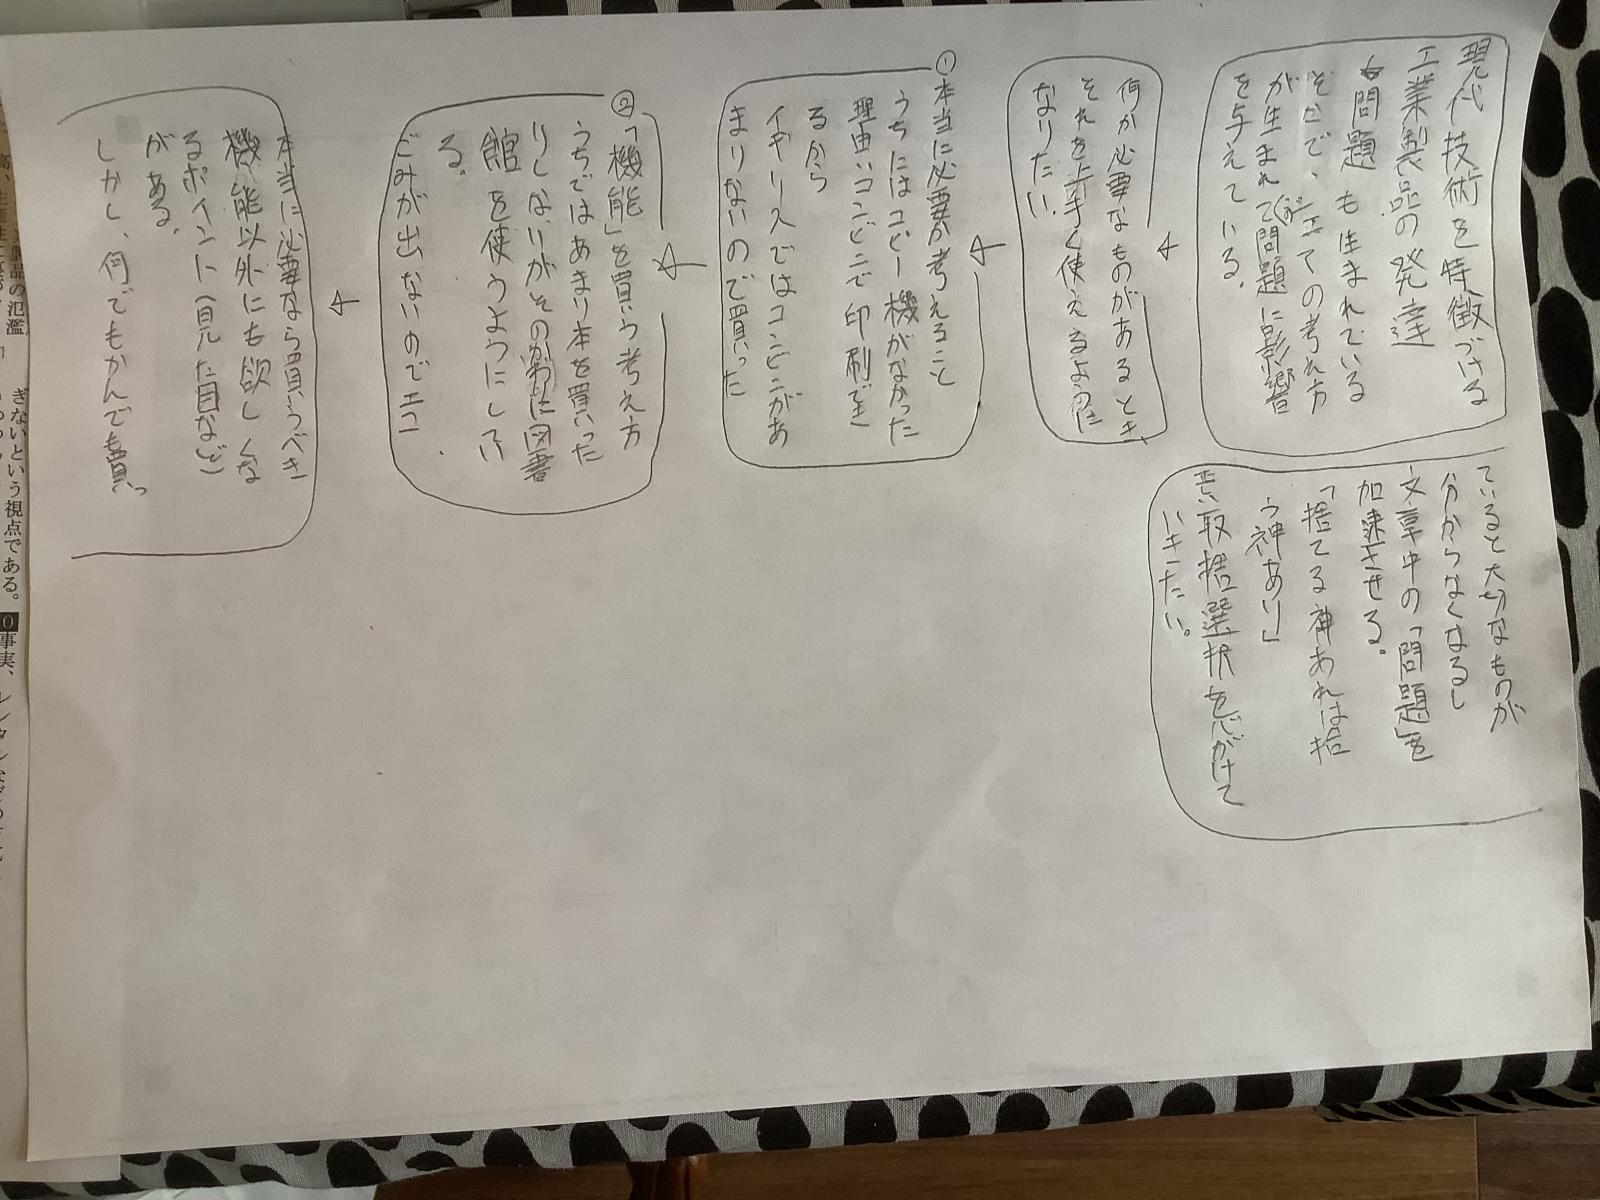 現代技術を特徴づける
工業製品の発達
問題も生まれている
そこで、の考え方
が生まれて問題に影響
を与えている。
何か必要なものがあるとき、
それを上手く使えるように
なりたい。
①本当に必要か考えること
うちにはコピー機がなかった
理由いコンビニで印刷でき
るから
イギリスではコンビニがあ
まりないので買った
②「機能」を買いう考え方
うちではあまり本を買った
りしないがその代わりに図書
館を使うようにしてい
る。
ごみが出ないのでエコ
本当に必要なら買いうべき
機能以外にも欲しくな
るポイント(見た目など)
がある。
しかし、何でもかんでも買っ
ていると大切なものが
分からなくなるし
文章中の「問題」を
加速させる。
「捨てる神あれば拾
う神あり」
取捨選択を心がけて
いきたい。
製品の氾濫
ぎないという視点である。
事実、レンタル